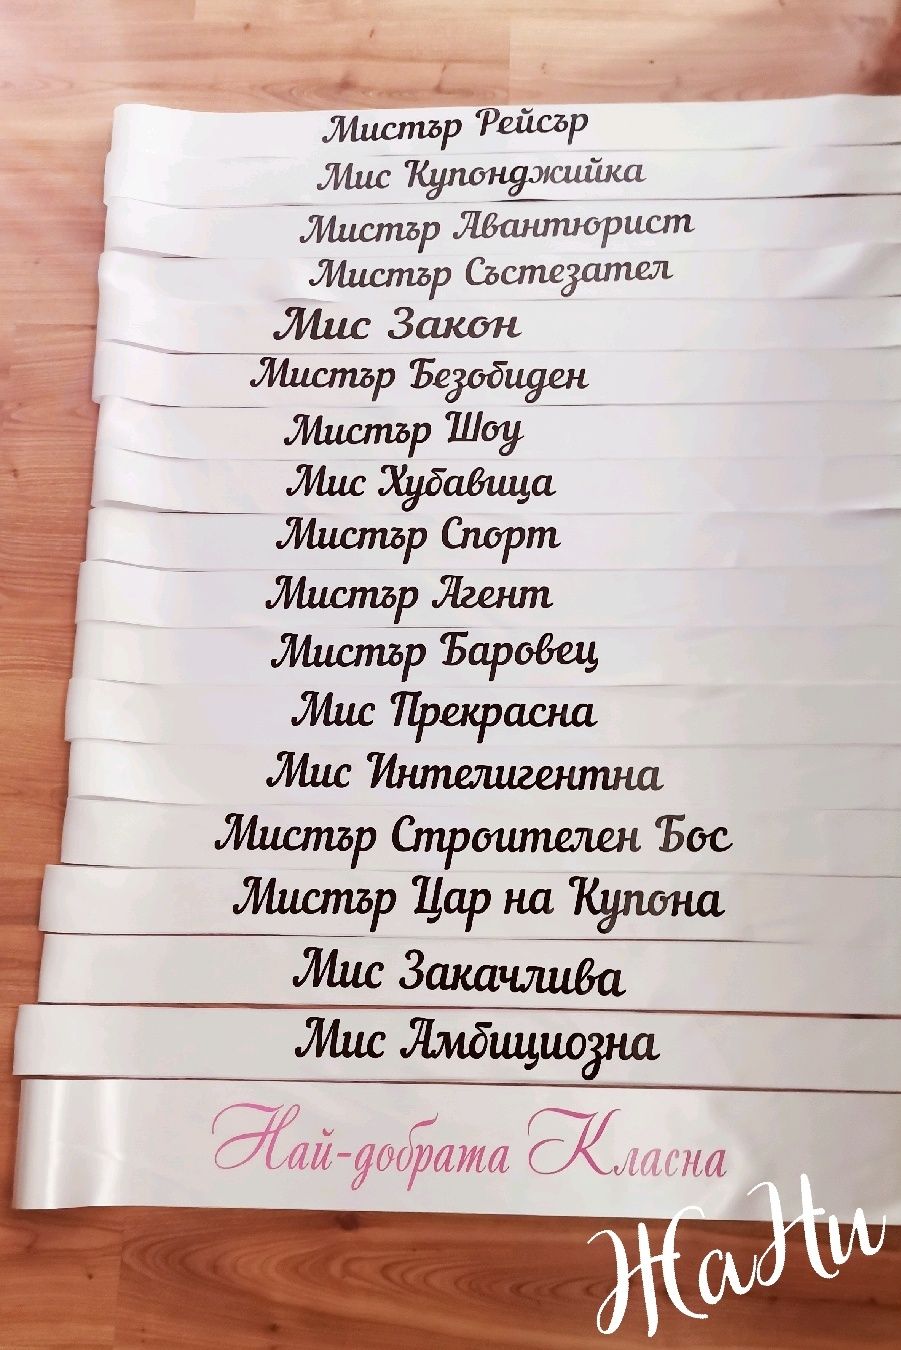 Мистър Рейсър
Мис Купонджийка
Мистър Авантюрист
Мистър Състезател
Мис Закон
Мистър Безобиден
Мистър Шоу
Мис Хубавица
Мистър Спорт
Мистър Агент
Мистър Баровец
Мис Прекрасна
Мис Интелигентна
Мистър Строителен Бос
Мистър Цар на Купона
Мис Закачлива
Мис Амбициозна
Най-добрата Класна
ЖаНи